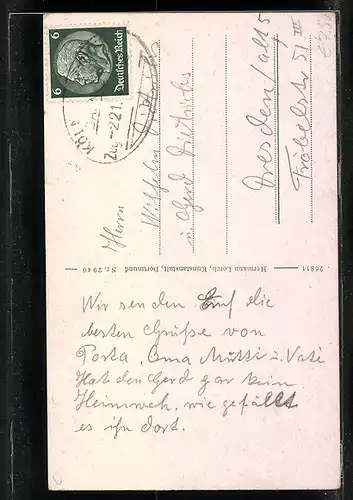 6 Deutsches Reich 6
KÖLN
Zug 221
Herrn
Wilhelm
u. Gerd Dietrichs
Dresden/alt 5
Fröbelstr 51 III
26811 Hermann Lorch, Kunstanstalt, Dortmund Nr. 2940
Wir senden Euch die
besten Grüße von
Porta, Oma Mutti u. Vati
Hat den Gerd gar kein
Heimweh, wie gefällt
es ihn dort.